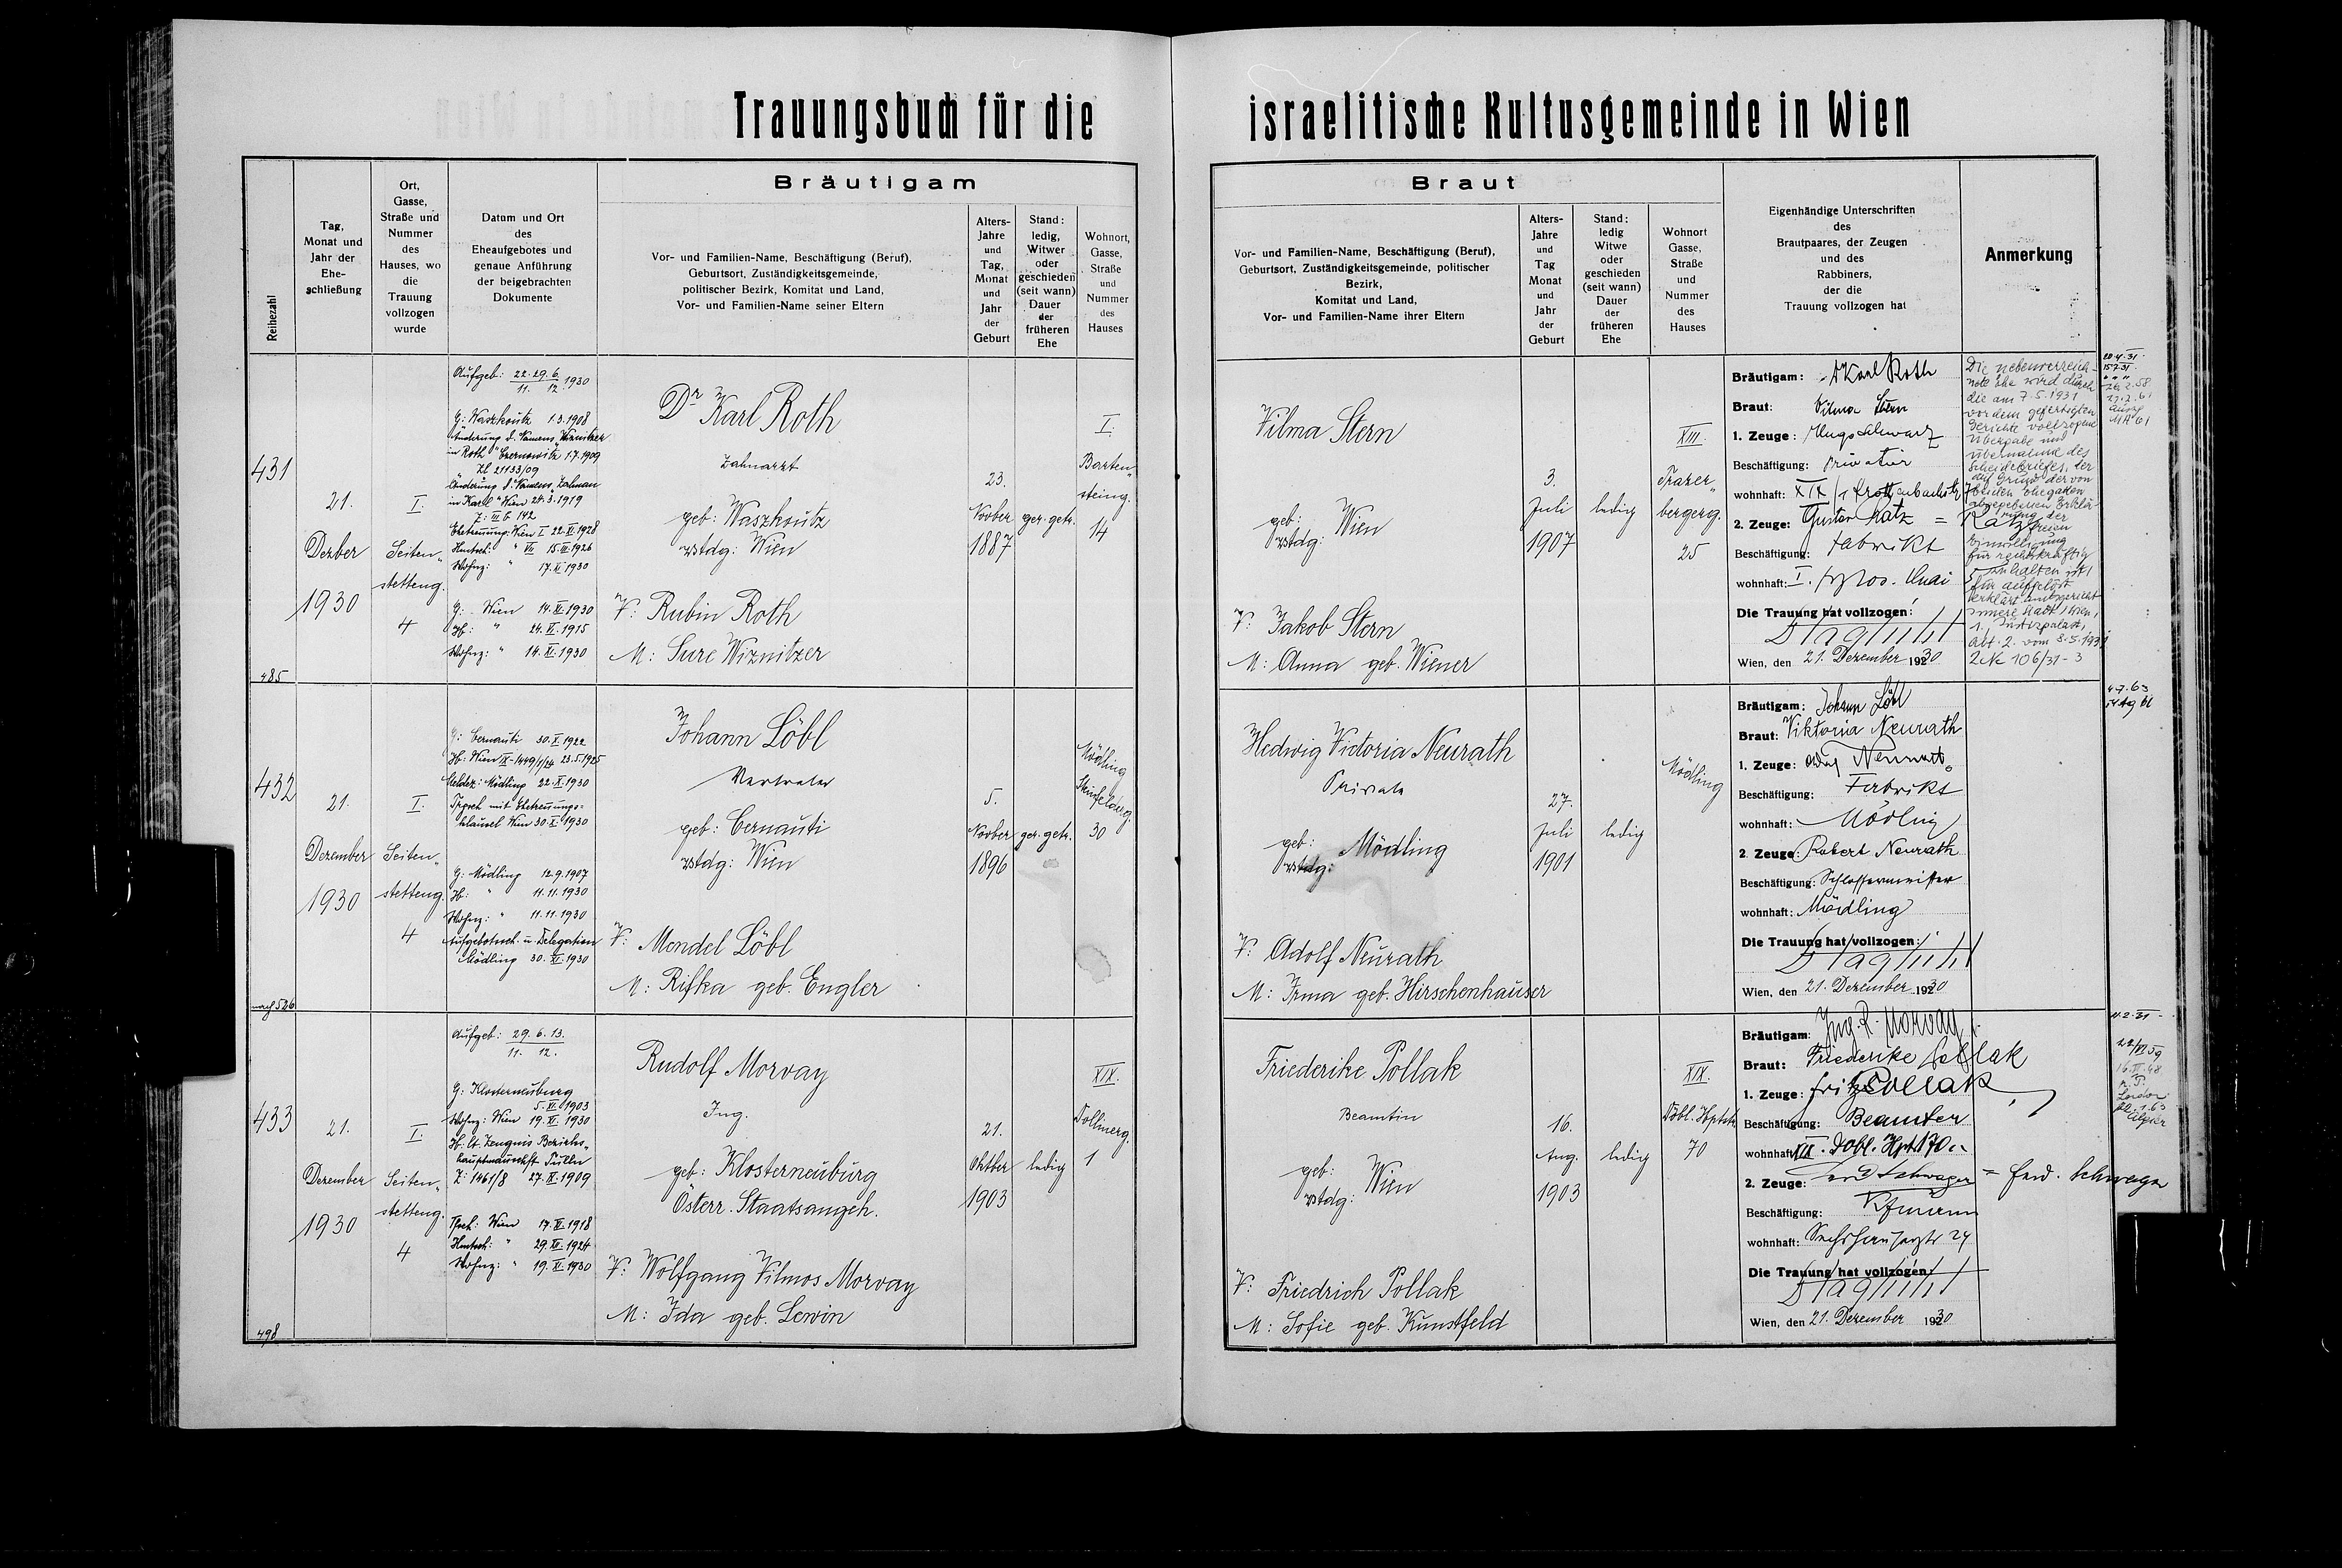 Trauungsbuch für die
israelitische Kultusgemeinde in Wien
Reihezahl
Tag,
Monat und
Jahr der
Ehe-
schließung
Ort,
Gasse,
Straße und
Nummer
des
Hauses, wo
die
Trauung
vollzogen
wurde
Datum und Ort
des
Eheaufgebotes und
genaue Anführung
der beigebrachten
Dokumente
Bräutigam
Vor- und Familien-Name, Beschäftigung (Beruf),
Geburtsort, Zuständigkeitsgemeinde,
politischer Bezirk, Komitat und Land,
Vor- und Familien-Name seiner Eltern
Alters-
Jahre
und
Tag,
Monat
und
Jahr
der
Geburt
Stand:
ledig,
Witwer
oder
geschieden
(seit wann)
Dauer
der
früheren
Ehe
Wohnort,
Gasse,
Straße
und
Nummer
des
Hauses
Braut
Vor- und Familien-Name, Beschäftigung (Beruf),
Geburtsort, Zuständigkeitsgemeinde, politischer
Bezirk,
Komitat und Land,
Vor- und Familien-Name ihrer Eltern
Alters-
Jahre
und
Tag
Monat
und
Jahr
der
Geburt
Stand:
ledig
Witwe
oder
geschieden
(seit wann)
Dauer
der
früheren
Ehe
Wohnort
Gasse,
Straße
und
Nummer
des
Hauses
Eigenhändige Unterschriften
des
Brautpaares, der Zeugen
und des
Rabbiners,
der die
Trauung vollzogen hat
Anmerkung
431
485
21.
Dezber
1930
I.
Seiten-
stetteng.
4
Aufgeb: 22. 29. 6. 1930
11. 12.
G: Waszkoutz 1.3.1908
Änderung d. Namens "Wiznitzer
in Roth" Czernowitz 1.7.1909
Zl 21133/09
Änderung d. Namens "Zalman
in Karl" Wien 24.3.1919
Z: VI 6 142
Ehetrennung: Wien I 22.VI.1928
Hmtsch: " VII 15.III.1926
Wohnz: " 17.XI.1930
G: Wien 14.XI.1930
Hz: " 24.VI.1915
Wohnz: " 14.XI.1930
Dr Karl Roth
Zahnarzt
geb: Waszkoutz
zstdg: Wien
V: Rubin Roth
M: Sure Wiznitzer
23.
Novber
1887
ger. getr.
I.
Barten-
steing.
14
Vilma Stern
geb:
zstdg: Wien
V: Jakob Stern
M: Anna geb. Wiener
3.
Juli
1907
ledig
XIII.
Trazer-
bergerg.
25
Bräutigam: Dr Karl Roth
Braut: Vilma Stern
1. Zeuge: Hugo Schwarz
Beschäftigung: Privatier
wohnhaft: XIX
2. Zeuge: Gustav Katz = Katz
Beschäftigung: Fabrikt
wohnhaft: I. Quai
Die Trauung hat vollzogen:
Wien, den 21. Dezember 1930
Die nebenverzeich-
nete Ehe wird durch
die am 7.5.1931
vor dem gefertigten
Gerichte vollzogene
Übergabe und
Übernahme des
Scheidebriefes, der
auf Grund der von
beiden Ehegatten
abgegebenen Erklä-
rung der
freien
Einwilligung
für rechtskräftig
zu halten ist
für aufgelöst
erklärt Amtsgericht
Innere Stadt, Wien,
1. Justizpalast,
Abt. 2. vom 8.5.1931
2 Nc 106/31-3
432
nach 526
21.
Dezember
1930
I.
Seiten-
stetteng.
4
G: Cernauti 30.X.1922
Hz: Wien IX-1449/1/24 23.5.1925
Meldez: Mödling 22.XI.1930
Tzsch mit Ehetrennungs-
klausel Wien 30.X.1930
G: Mödling 12.9.1907
Hz: " 11.11.1930
Wohnz: " 11.11.1930
Aufgebotsch. u. Delegation
Mödling 30.XI.1930
Johann Löbl
Vertreter
geb: Cernauti
zstdg: Wien
V: Mendel Löbl
M: Rifka geb. Engler
5.
Novber
1896
ger. getr.
Mödling
Steinfelderg.
30
Hedwig Victoria Neurath
Private
geb:
zstdg: Mödling
V: Adolf Neurath
M: Irma geb. Hirschenhauser
27.
Juli
1901
ledig
Mödling
Bräutigam: Johann Löbl
Braut: Viktoria Neurath
1. Zeuge: Adolf Neurath
Beschäftigung: Fabrikt
wohnhaft: Mödling
2. Zeuge: Robert Neurath
Beschäftigung: Schlossermeister
wohnhaft: Mödling
Die Trauung hat vollzogen:
Wien, den 21. Dezember 1930
433
498
21.
Dezember
1930
I.
Seiten-
stetteng.
4
Aufgeb: 29. 6. 13.
11. 12.
G: Klosterneuburg
5.XI.1903
Wohnz: Wien 19.XI.1930
Hz: lt. Zeugnis Bezirks-
hauptmannschft Tulln
Z: 1461/8 27.IX.1909
Tsch: Wien 17.VI.1918
Hmtsch: " 29.XII.1924
Wohnz: " 19.XI.1930
Rudolf Morvay
Ing.
geb: Klosterneuburg
Österr. Staatsangeh.
V: Wolfgang Vilmos Morvay
M: Ida geb. Lewin
21.
Oktber
1903
ledig
XIX.
Dollinerg.
1
Friederike Pollak
Beamtin
geb:
zstdg: Wien
V: Friedrich Pollak
M: Sofie geb. Kunstfeld
16.
Aug.
1903
ledig
XIX.
Döbl. Hptstr
70
Bräutigam: Ing. R. Morvay
Braut: Friederike Pollak
1. Zeuge: Fritz Pollak
Beschäftigung: Beamter
wohnhaft: XIX. Döbl. Hptstr 70
2. Zeuge: Ferd Schwager = Ferd. Schwager
Beschäftigung: Kfmann
wohnhaft: Sechshauserstr 24
Die Trauung hat vollzogen:
Wien, den 21. Dezember 1930